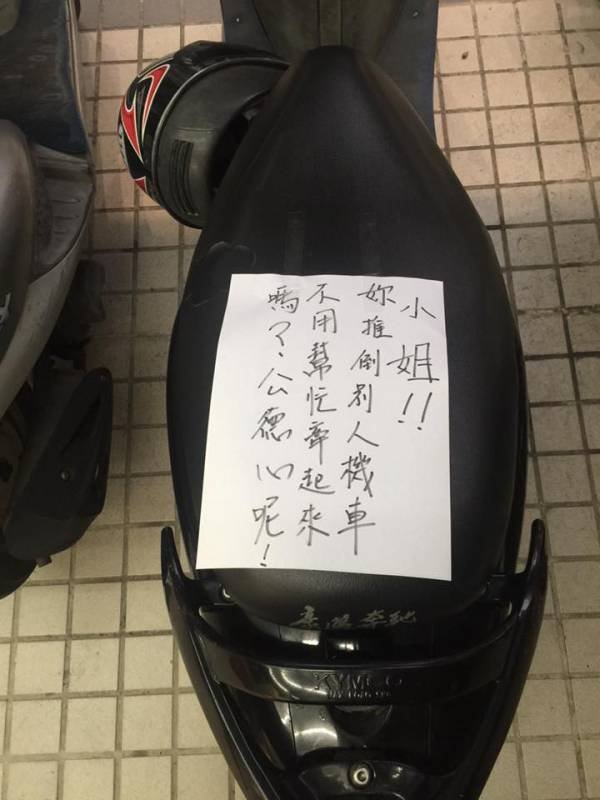 小姐!!
妳推倒別人機車
不用幫忙牽起來
嗎?公德心呢!
KYMCO